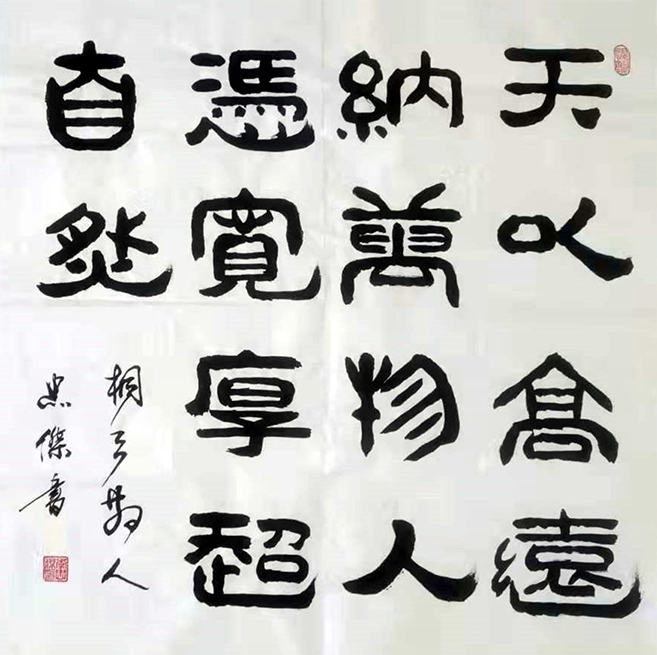 天以高遠
納萬物人
憑寬厚超
自然
忠傑書